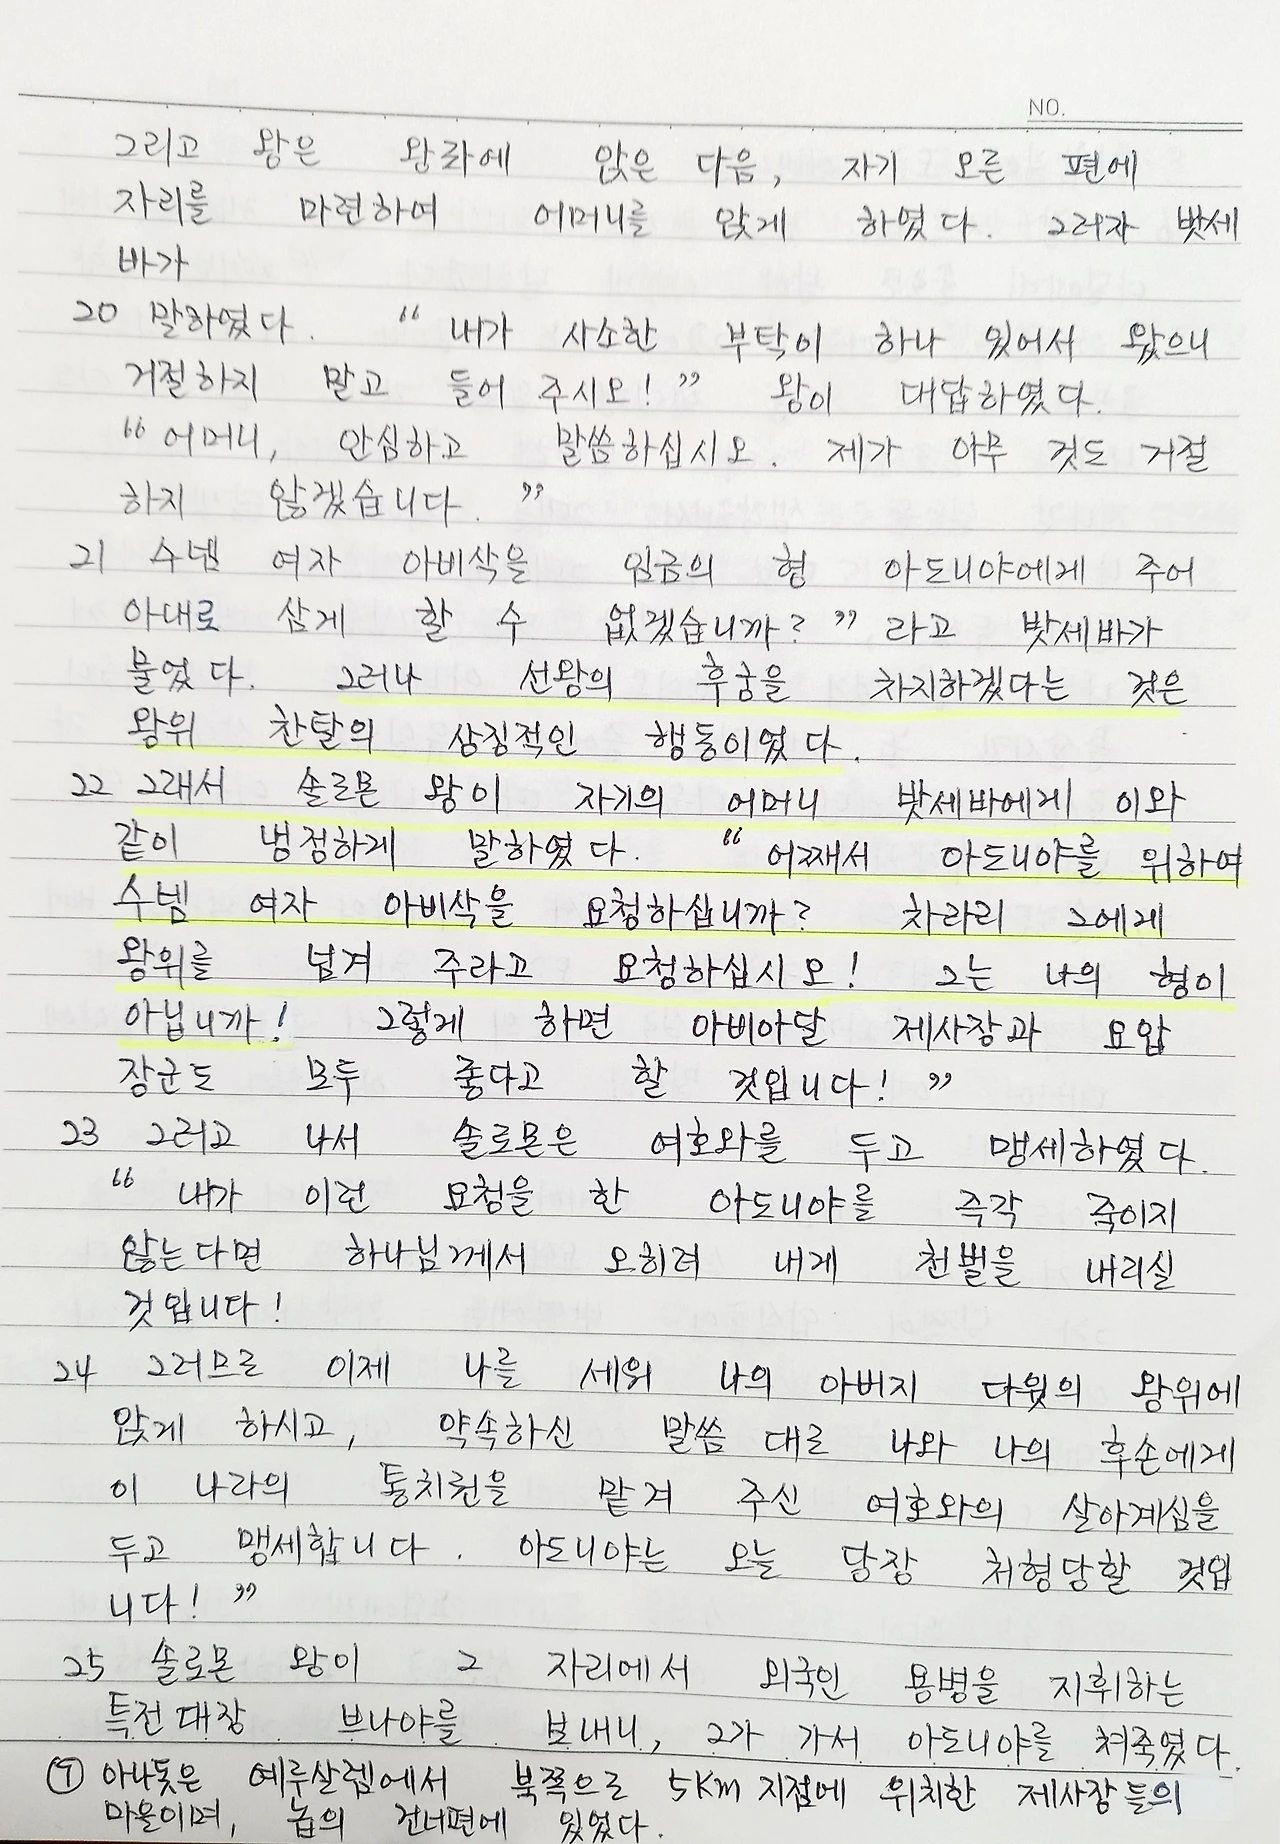 NO.
그리고 왕은 왕좌에 앉은 다음, 자기 오른 편에
자리를 마련하여 어머니를 앉게 하였다. 그러자 밧세
바가
20 말하였다. “내가 사소한 부탁이 하나 있어서 왔으니
거절하지 말고 들어 주시오!” 왕이 대답하였다.
“어머니, 안심하고 말씀하십시오. 제가 아무 것도 거절
하지 않겠습니다.”
21 수넴 여자 아비삭을 임금의 형 아도니야에게 주어
아내로 삼게 할 수 없겠습니까?” 라고 밧세바가
물었다. 그러나 선왕의 후궁을 차지하겠다는 것은
왕위 찬탈의 상징적인 행동이었다.
22 그래서 솔로몬 왕이 자기의 어머니 밧세바에게 이와
같이 냉정하게 말하였다. “어째서 아도니야를 위하여
수넴 여자 아비삭을 요청하십니까? 차라리 그에게
왕위를 넘겨 주라고 요청하십시오! 그는 나의 형이
아닙니까! 그렇게 하면 아비아달 제사장과 요압
장군도 모두 좋다고 할 것입니다!”
23 그러고 나서 솔로몬은 여호와를 두고 맹세하였다.
“내가 이런 요청을 한 아도니야를 즉각 죽이지
않는다면 하나님께서 오히려 내게 천벌을 내리실
것입니다!
24 그러므로 이제 나를 세워 나의 아버지 다윗의 왕위에
앉게 하시고, 약속하신 말씀 대로 나와 나의 후손에게
이 나라의 통치권을 맡겨 주신 여호와의 살아계심을
두고 맹세합니다. 아도니야는 오늘 당장 처형당할 것입
니다!”
25 솔로몬 왕이 그 자리에서 외국인 용병을 지휘하는
특전대장 브나야를 보내니, 그가 가서 아도니야를 쳐죽였다.
⑦ 아나돗은 예루살렘에서 북쪽으로 5Km 지점에 위치한 제사장들의
마을이며, 놉의 건너편에 있었다.